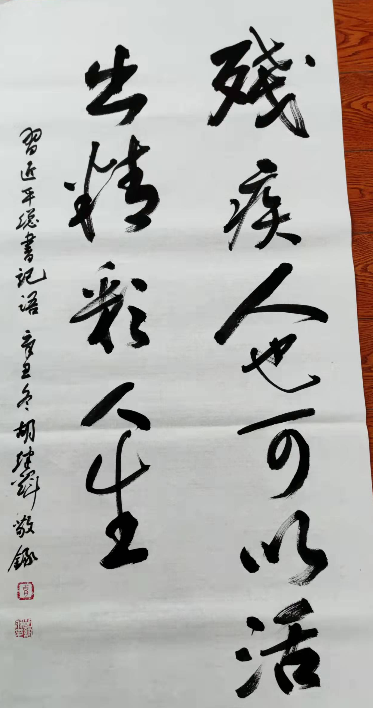 殘疾人也可以活
出精彩人生
習近平總書記語 辛丑冬胡 敬錄